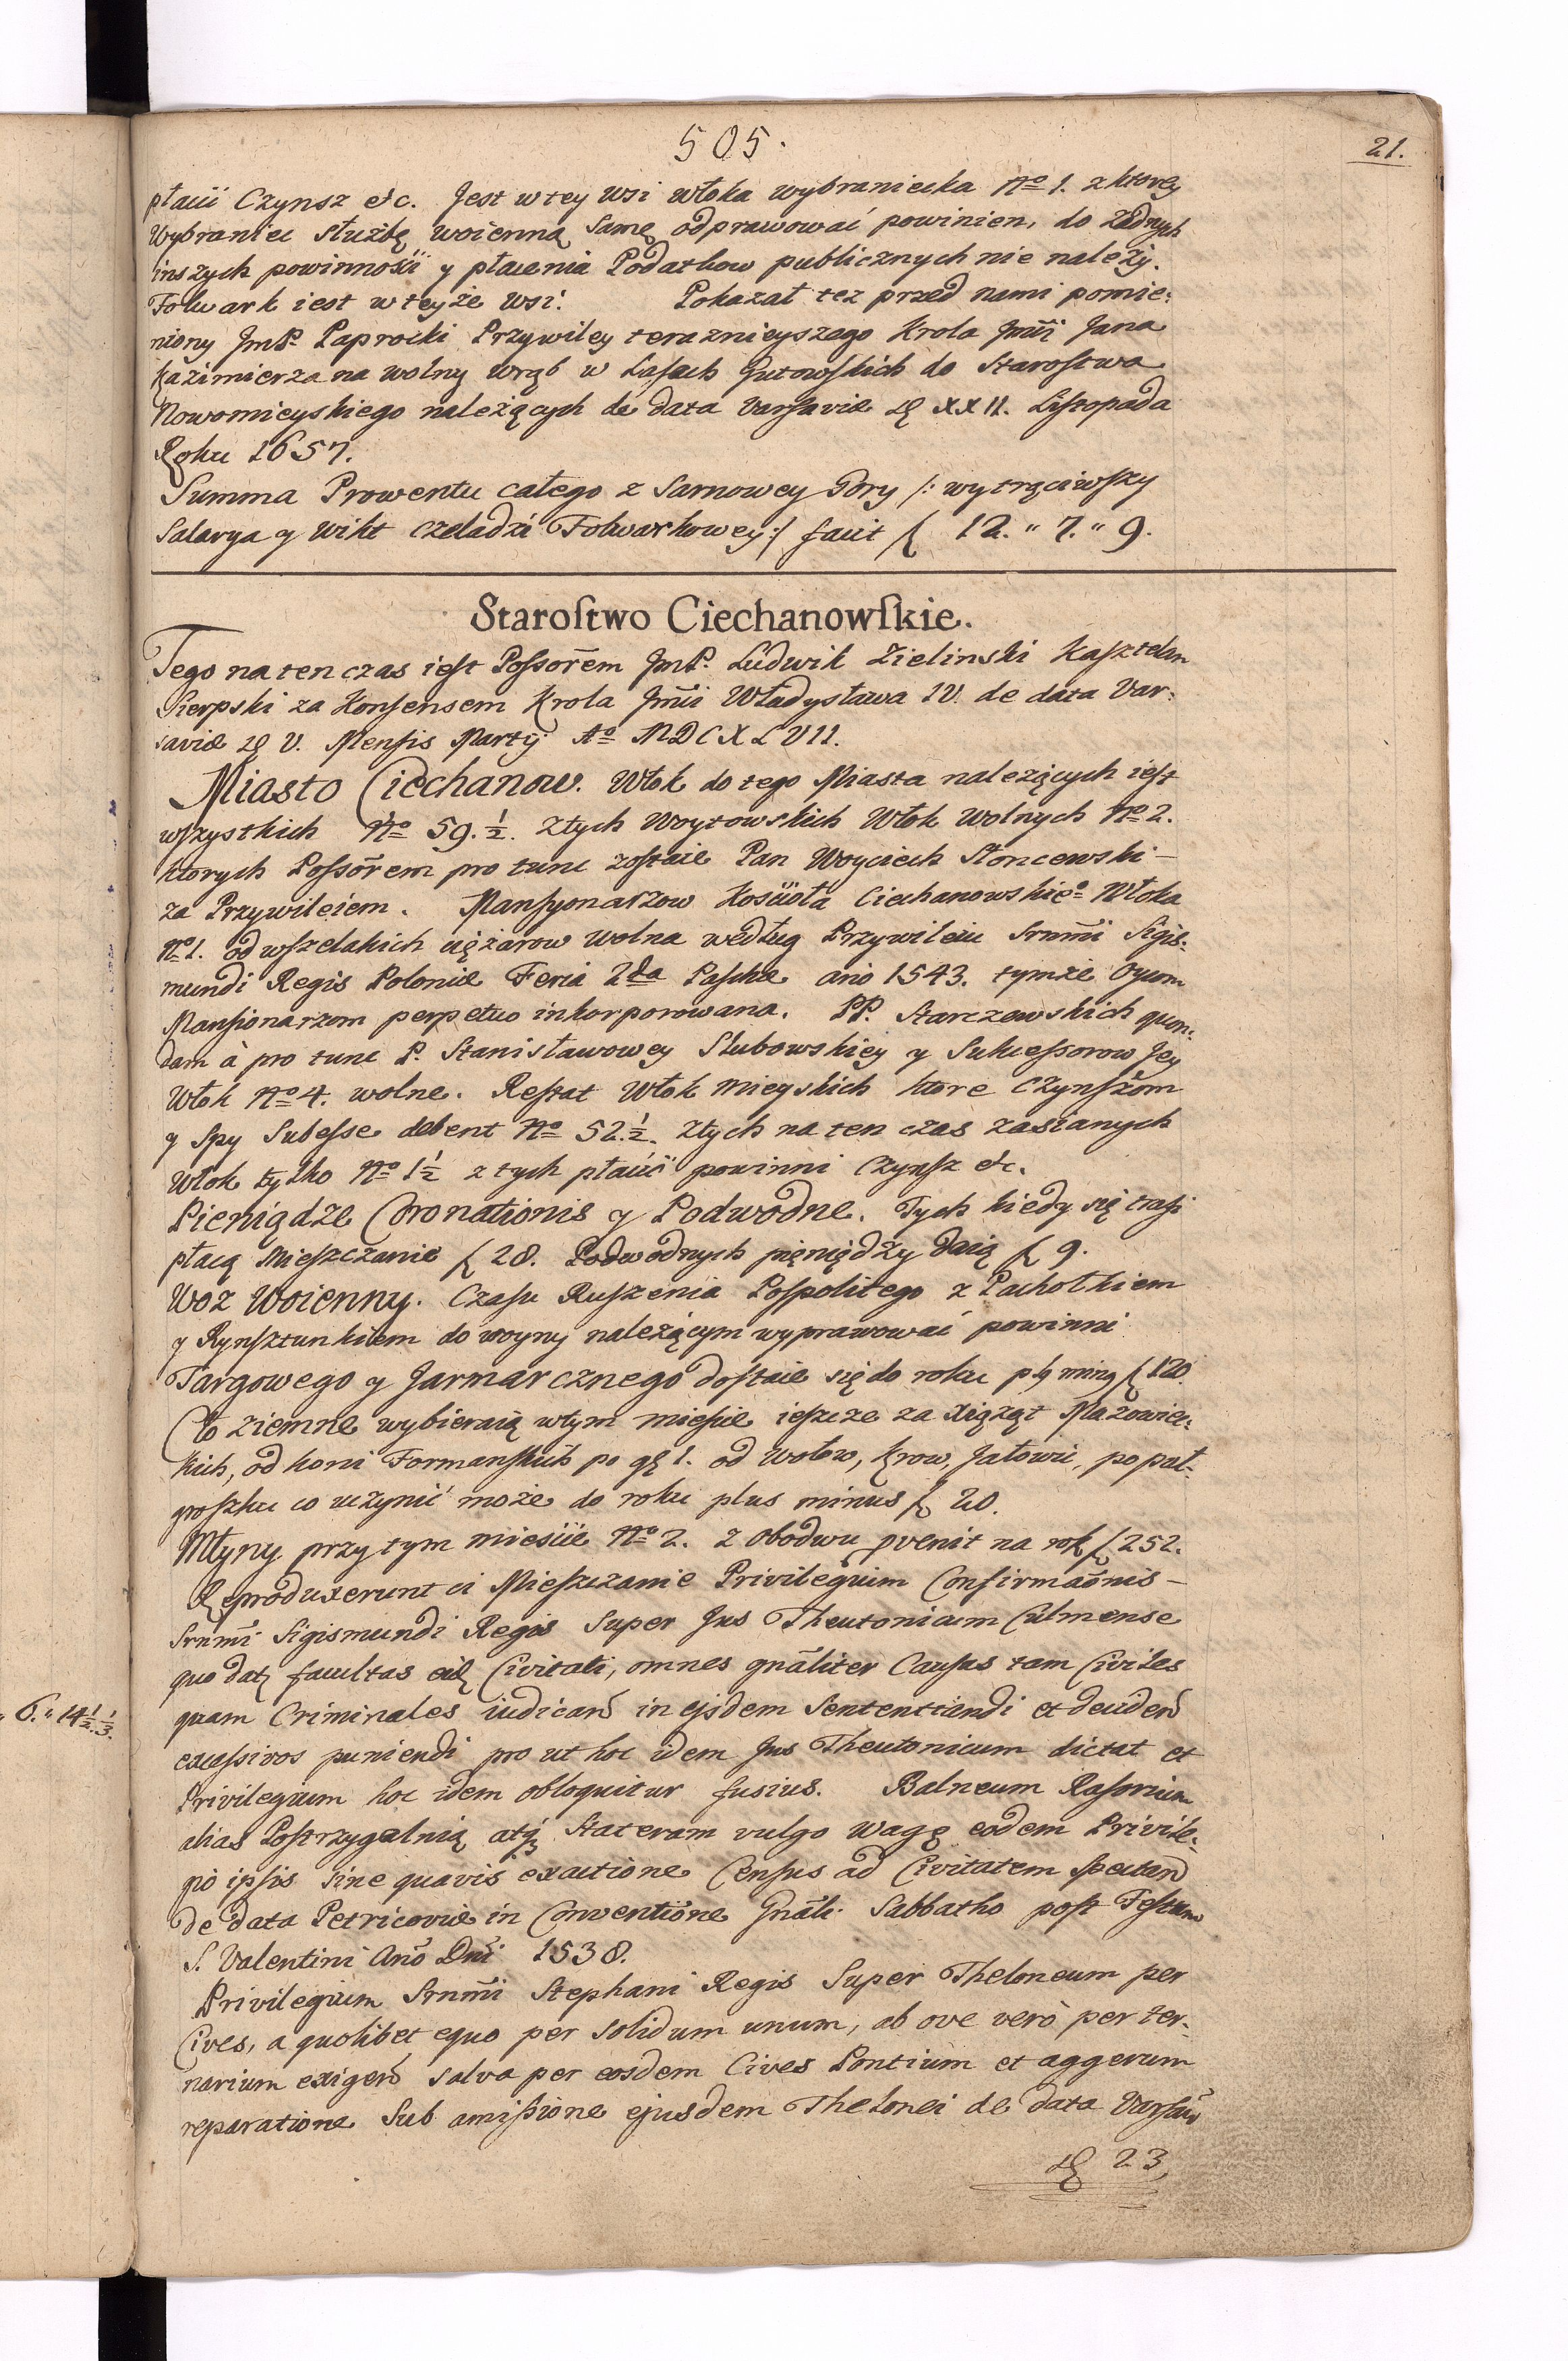 505.
21.
płacić Czynsz etc. Jest w tey Wsi Włoka wybraniecka No 1. z ktorey
Wybraniec służbę woienną samę odprawować powinien, do żadnych
inszych powinności y płacenia Podatkow publicznych nie należy.
Folwark iest w teyże Wsi. Pokazał tez przed nami pomie-
niony JmP. Paprocki Przywiley teraznieyszego Krola Jmći Jana
Kazimierza na wolny wrąb w Lasach Gutowskich do Starostwa
Nowomieyskiego należących de data Varsaviæ d. XXII. Listopada
Roku 1657.
Summa Prowentu całego z Sarnowey Gory /: wytrąciwszy
Salarya y wikt czeladzi Folwarkowey :/ facit f 12. " 7. " 9.
Starostwo Ciechanowskie.
Tego na ten czas iest Possorem JmP. Ludwik Zielinski Kasztelan
Sierpski za Konsensem Krola Jmći Władysława IV. de data Var-
saviæ d. V. Mensis Martÿ Ao MDCXLVII.
Miasto Ciechanow. Włok do tego Miasta nalezących iest
wszystkich No 59. ½. Z tych Woytowskich Włok wolnych No 2.
ktorych Possorem pro tunc zostaie Pan Woyciech Stoncewski –
za Przywileiem. Mansyonarzow Koscioła Ciechanowskieo Włoka
No 1. od wszelakich ciężarow wolna według Przywileiu Srnmi Sigis-
mundi Regis Poloniæ Feria 2da Paschæ año 1543. tymże Oycom
Mansionarzom perpetuo inkorporowana. PP. Starczewskich quon-
dam à pro tunc P. Stanisławowey Słubowskiey y Sukcessorow Jey
Włok No 4. wolne. Restat Włok mieyskich ktore Czynszom
y Spy Subesse debent No 52. ½. Z tych na ten czas zasianych
Włok tylko No 1½ z tych płacić powinni Czynsz etc.
Pieniądze Coronationis y Podwodne. Tych kiedy się trafi
płacą Mieszczanie f 28. Podwodnych pięniędzy daią f 9.
Woz Woienny. Czasu Ruszenia Pospolitego z Pachołkiem
y Rynsztunkiem do woyny należącym wyprawować powinni
Targowego y Jarmarcznego dostaie się do roku pl9 min9 f 120.
Cło ziemne wybieraią w tym mieście ieszcze za Xiążąt Mazowiec-
kich, od koni Formanskich po gł 1. od Wołow, Krow, Jałowic, po poł-
groszku co uczynić może do roku plus minus f 20.
Młyny przy tym mieście No 2. z Obodwu pvenit na rok f 252.
Reproduxerunt ci Mieszczanie Privilegium Confirmaõnis –
Srnmi Sigismundi Regis Super Jus Theutonicum Culmense
quo dat facultas eid Civitati, omnes gnãliter Causas tam Civiles
quam Criminales iudicand in ejsdem Sententiandi et decidend
excessivos puniendi pro ut hoc idem Jus Theutonicum dictat et
Privilegium hoc idem obloquitur fusius. Balneum Rasorium
alias Postrzygalnią atq Stateram vulgo Wagę eodem Privile-
gio ipsis sine quavis exactione Census ad Civitatem spectand
de data Petricoviæ in Conventione Gnãli Sabbatho post Festum
S. Valentini Anõ Dni 1538.
Privilegium Srnmi Stephani Regis Super Theloneum per
Cives, a quolibet equo per solidum unum, ab ove verò per ter-
narium exigend salva per eosdem Cives Pontium et aggerum
reparatione Sub amissione ejusdem Thelonei de data Varsav
d. 23,
6. " 14 ½ ⅓.